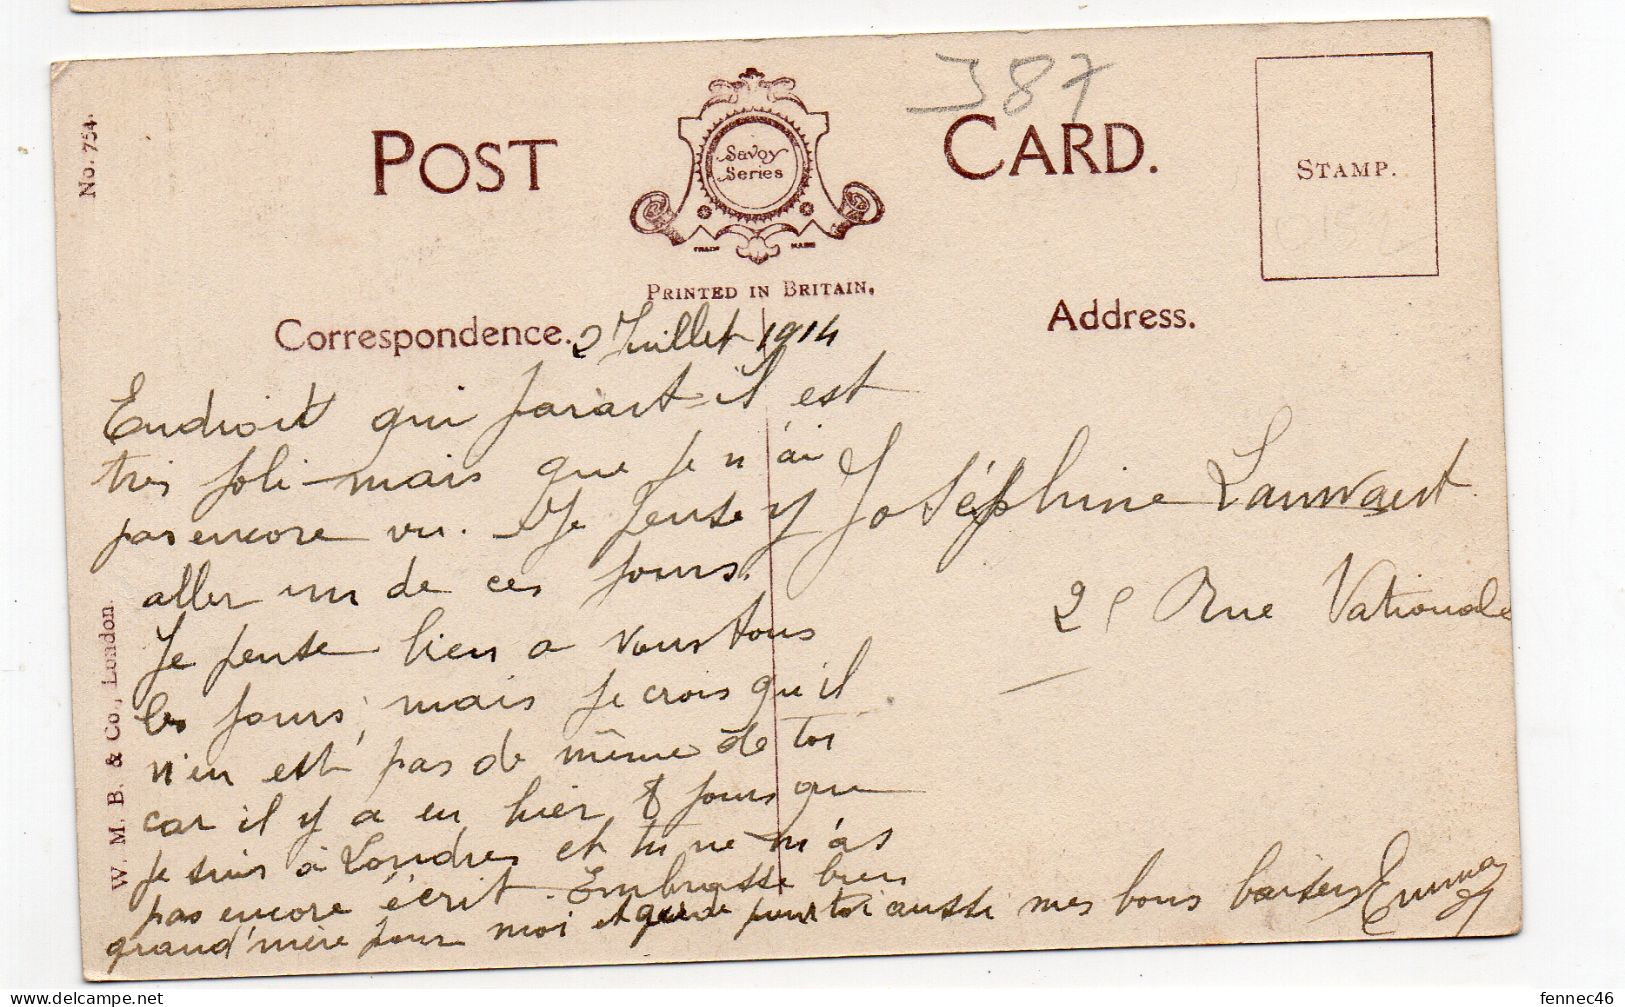 No. 754.
POST CARD.
387
Savoy
Series
TRADE MARK
STAMP.
PRINTED IN BRITAIN.
Correspondence.
Address.
2 Juillet 1914
Endroit qui parait-il est
très joli mais que je n'ai
pas encore vu. Je pense y
aller un de ces jours.
Je pense bien a vous tous
les jours, mais je crois qu'il
n'en est pas de même de toi
car il y a eu hier 8 jours que
je suis à Londres et tu ne m'as
pas encore écrit. Embrasse bien
grand'mère pour moi et garde pour toi aussi mes bons baisers Emma
Joséphine Lauwaert
2 Rue Nationale
W. M. B. & Co., London.
fennec46